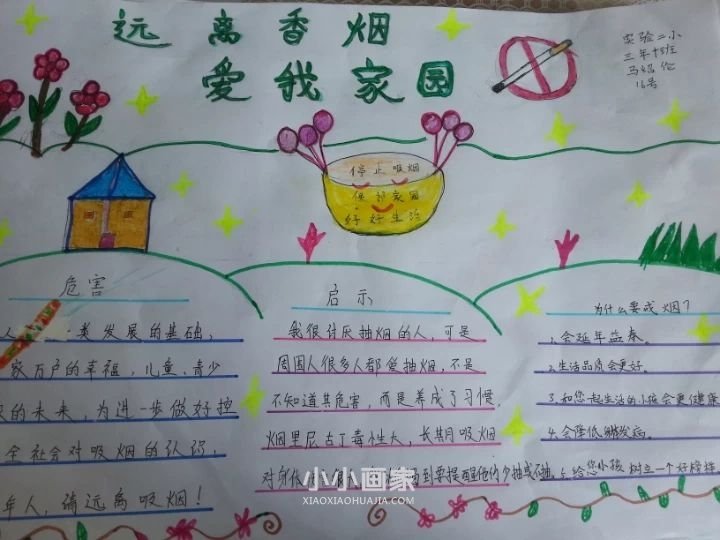 远离香烟
爱我家园
实验二小
三年十班
16号
停止吸烟
保护家园
好好生活
危害
类发展的基础,
家万户的幸福,儿童、青少
的未来,为进一步做好控
全社会对吸烟的认识,
年人,请远离吸烟!
启示
我很讨厌抽烟的人,可是
周围人很多人都爱抽烟,不是
不知道其危害,而是养成了习惯.
烟里尼古丁毒性大,长期吸烟
到要提醒他们少抽或不抽.
为什么要戒烟?
1.会延年益寿。
2.生活品质会更好。
3.和您一起生活的小孩会更健康
4.会降低触发病。
5.给您小孩树立一个好榜样
小小画家
XIAOXIAOHUAJIA.COM